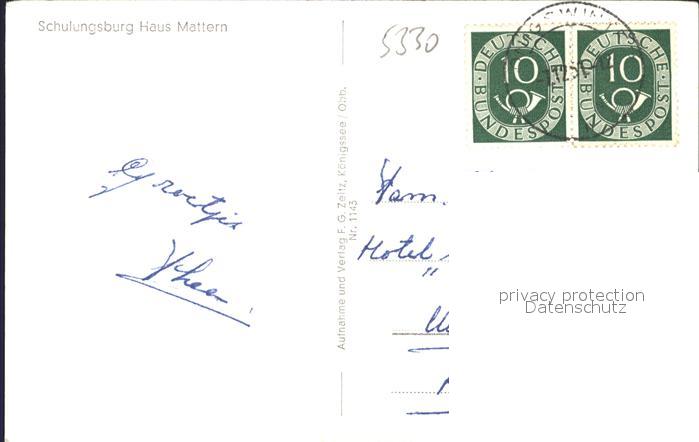 Schulungsburg Haus Mattern
5330
DEUTSCHE BUNDESPOST
10
DEUTSCHE BUNDESPOST
10
Groetjes
Aufnahme und Verlag F. G. Zeitz, Königssee / Obb.
Nr. 1143
Fam.
Hotel
"
privacy protection
Datenschutz